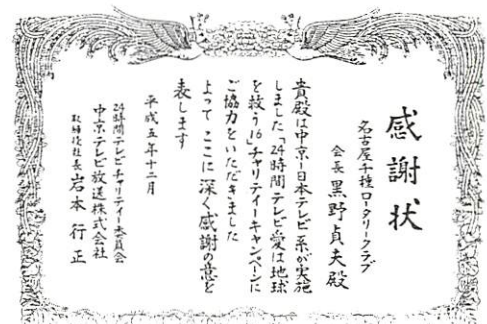 感謝状
名古屋千種ロータリークラブ
会長 黒野貞夫殿
貴殿は中京・日本テレビ系が実施
しました「24時間テレビ愛は地球
を救う16」チャリティーキャンペーンに
ご協力をいただきました
よって ここに深く感謝の意を
表します
平成五年十二月
24時間テレビチャリティー委員会
中京テレビ放送株式会社
取締役社長 岩本行正